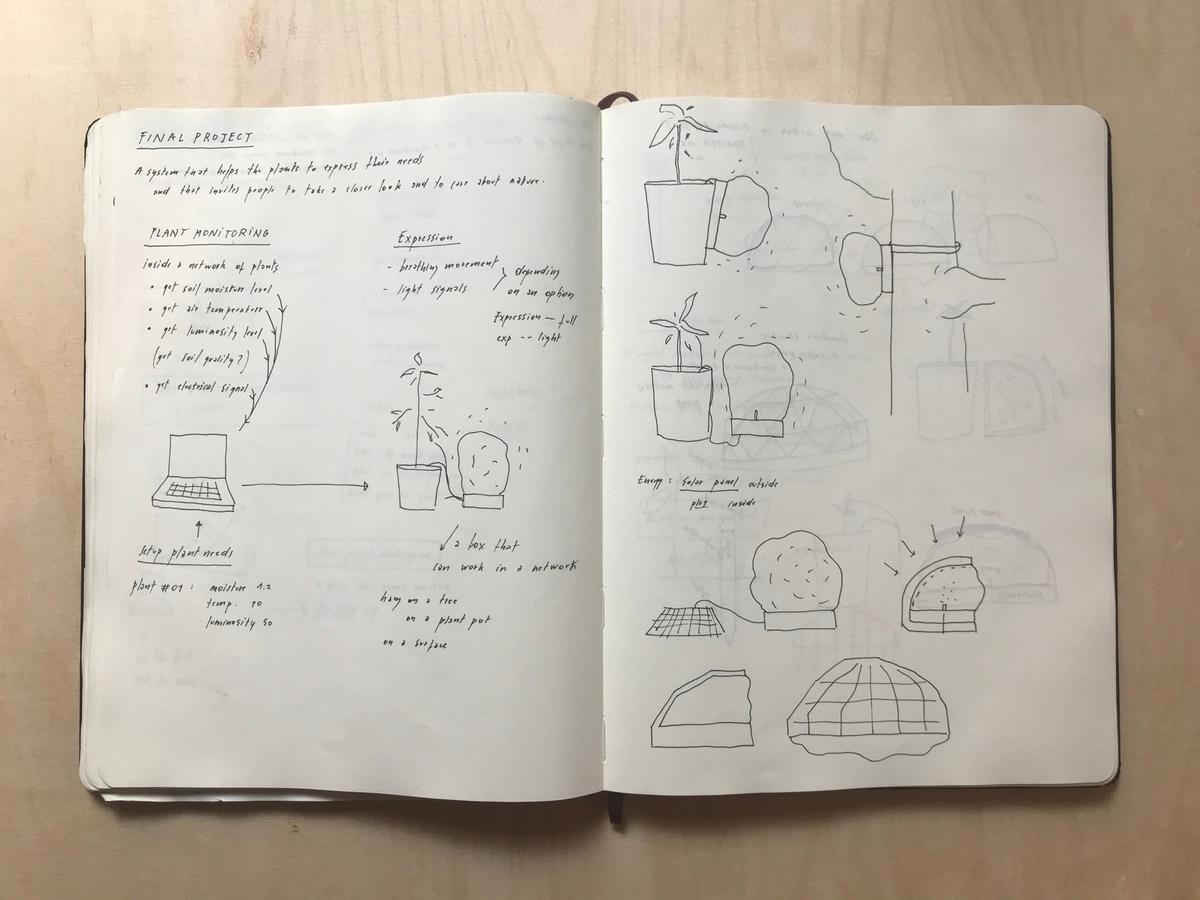 FINAL PROJECT
A system that helps the plants to express their needs
and that invites people to take a closer look and to care about nature.
PLANT MONITORING
inside a network of plants
• get soil moisture level
• get air temperature
• get luminosity level
(get soil quality?)
• get electrical signal
Setup plant needs
plant #01 : moisture 1.2
temp. 10
luminosity 50
Expression
- breathing movement
- light signals
depending
on an option
Expression — full
exp -- light
a box that
can work in a network
hang on a tree
on a plant pot
on a surface
Energy : Solar panel outside
plug inside